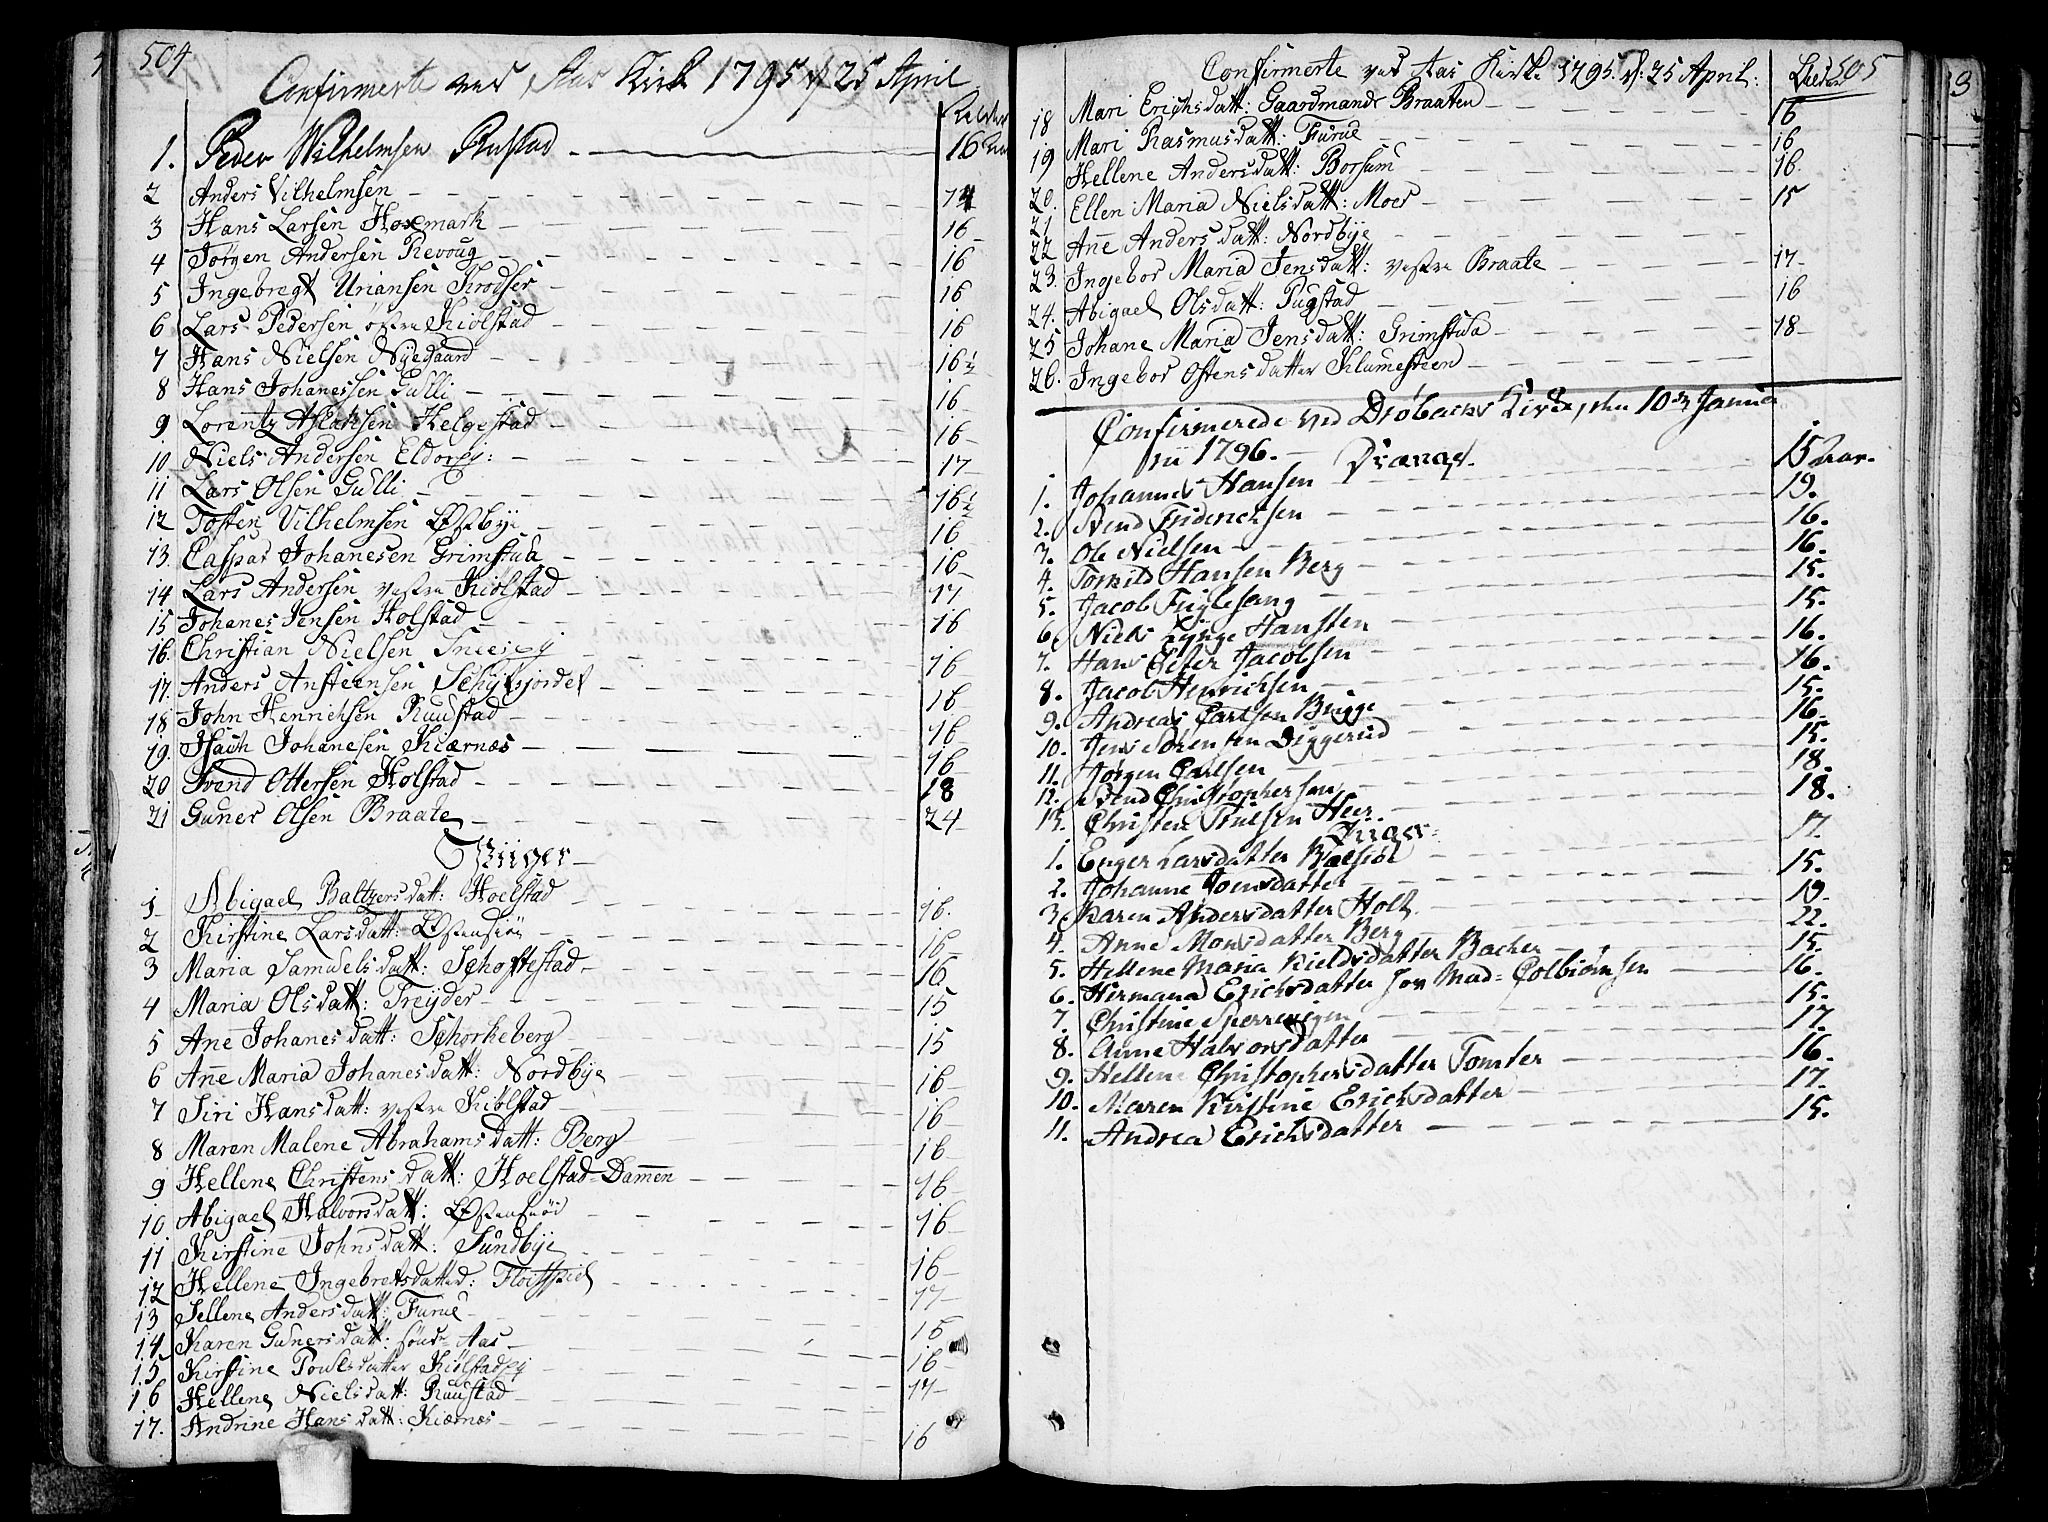 504
Confirmerte ved Aas Kirk 1795 d 25 April
Alder
1. Peder Wilhelmsen Rustad 16 Aar
2 Anders Vilhelmsen 14
3 Hans Larsen Hoxmark 16
4 Jørgen Andersen Revoug 16
5 Ingebregt Uriansen Krodser 16
6 Lars Pedersen østre Kiølstad 16
7 Hans Nielsen Nyegaard 16 1/2
8 Hans Johanessen Gulli 16
9 Lorentz Aslachsen Helgestad 16
10 Niels Andersen Eldorey: 17
11 Lars Olsen Gulli 16 1/2
12 Tosten Vilhelmsen Østbye 16
13. Caspar Johanesen Grimstua 16
14 Lars Andersen vestre Kiølstad 17
15 Johanes Jensen Holstad 16
16. Christian Nielsen 16
17. Anders Ansteensen Schytsjordet 16
18. John Henrichsen Ruustad 16
19. Isach Johanesen Kiærnæs 16
20 Svend Ottersen Holstad 18
21 Guner Olsen Braate 24
Piiger
1 Abigael Baltzersdatt: Hoelstad 16.
2 Kirstine Larsdatt: Østensiøe 16
3 Maria Samuelsdatt: Schoftestad 16
4 Maria Olsdatt: Treyder 15
5 Ane Johanesdatt: Schorkeberg 15
6 Ane Maria Johanesdatt: Nordbye 16
7 Siri Hansdatt: vestre Kiølstad 16
8 Maren Malene Abrahamsdatt: Berg 16
9 Hellene Christensdatt: Hoelstad-Damen 16
10 Abigael Halvorsdatt: 16
11 Kirstine Johnsdatt: Sundbye 16
12 Hellene Ingebretsdatter: Fløitspiel 17
13 Sellene Andersdatt: Furue 16
14 Karen Gunersdatt: søndr Aas 16
15 Kirstine Poulsdatter Kiølstadey 17
16 Hellene Nielsdatt: Ruustad
17. Andrine Hansdatt: Kiærnæs 16
Confirmerte ved Aas Kirke 1795. d: 25 April: 505
18 Mari Erichsdatt: Gaardmands Braaten 16
19 Mari Rasmusdatt: Furue 16
20. Hellene Andersdatt: Borsum 16.
21 Ellen Maria Nielsdatt: Moer 15
22 Ane Andersdatt: Nordbye
23. Ingebor Maria Jensdatt: vestre Braate 17
24. Abigael Olsdatt: Pugstad 16
25 Johane Maria Jensdatt: Grimstua 18
26. Ingebor Ostensdatter Klumesteen
Confirmerede ved Drøbachs Kirke, den 10de Janua
rii 1796. Drænge.
1. Johannes Hansen 15 Aar.
2. Svend Friderichsen 19.
3. Ole Nielsen 16.
4. Torkild Hansen Berg 16.
5. Jacob Fuglesang 15.
6. Niels Lynge Hansten 15.
7. Hans Peter Jacobsen 16.
8. Jacob Henrichsen 16.
9. Andreas Carlsen Brygge 15.
10. Jens Sørensen Diggerud 16.
11. Jørgen Carlsen 15.
12. Svend Christophersen 18.
13. Christen Truelsen Heer 18.
Piiger
1. Enger Larsdatter 17.
2. Johanne Joensdatter 15.
3. Karen Andersdatter Holt. 19.
4. Anne Monsdatter Berg 22.
5. Hellene Maria Kieldsdatter Bacher 15.
6. Hermana Erichsdatter hos Mad= Colbiørnsen 16.
7. Christine Sperrevigen 15.
8. Anne Halvorsdatter 17.
9. Hellene Christophersdatter Tomter 16.
10. Maren Kirstine Erichsdatter 17.
11. Andrea Erichsdatter 15.